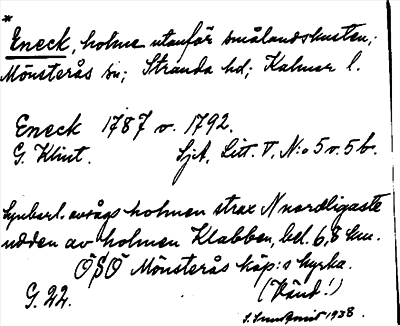 *
Eneck, holme utanför smålandskusten;
Mönsterås sn; Stranda hd; Kalmar l.
Eneck 1787 o. 1792.
G. Klint. SjA, Litt. V, N:o 5 o. 5b.
holmen strax N nordligaste
udden av holmen Klabben, bel. 6,8 km.
ÖSÖ Mönsterås köp:s kyrka.
(Vänd!)
G. 22.
1938.